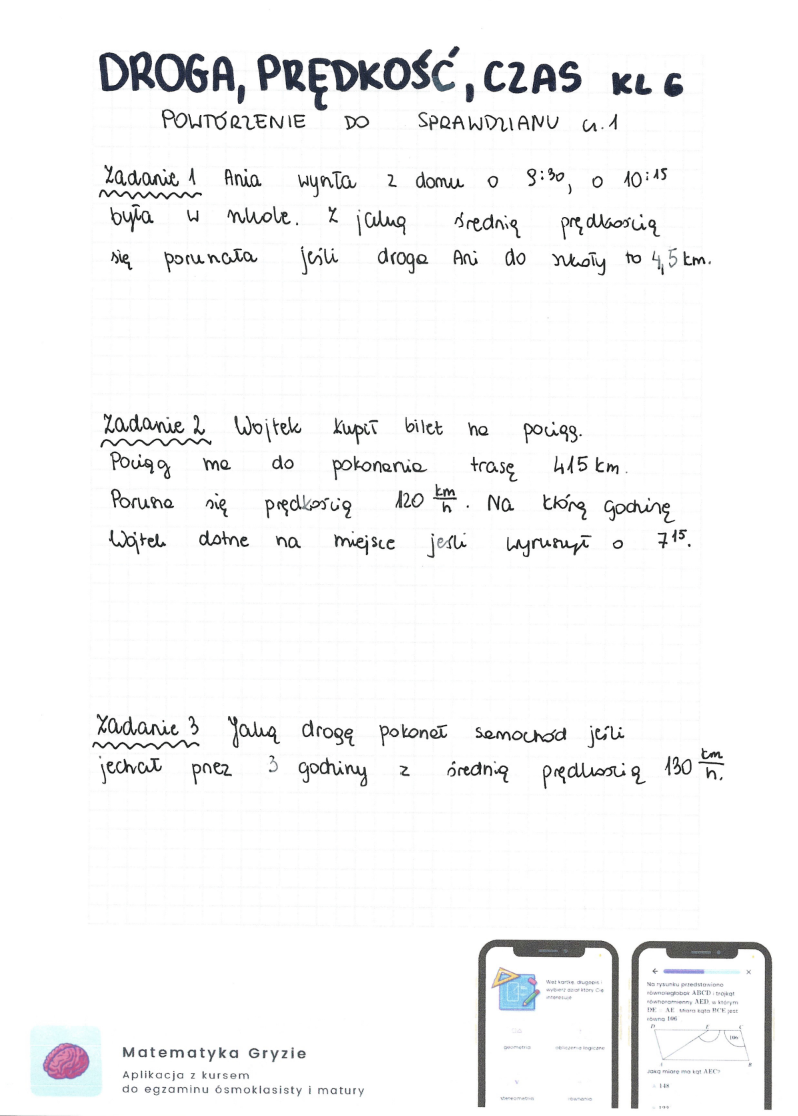 DROGA, PRĘDKOŚĆ, CZAS KL 6
POWTÓRZENIE DO SPRAWDZIANU cz. 1
Zadanie 1 Ania wyszła z domu o 9:30, o 10:15
była w szkole. Z jaką średnią prędkością
się poruszała jeśli droga Ani do szkoły to 4,5 km.
Zadanie 2 Wojtek kupił bilet na pociąg.
Pociąg ma do pokonania trasę 415 km.
Porusza się prędkością 120 km/h. Na którą godzinę
Wojtek dotrze na miejsce jeśli wyruszył o 7 15.
Zadanie 3 Jaką drogę pokonał samochód jeśli
jechał przez 3 godziny z średnią prędkością 130 km/h.
Weź kartkę, długopis i
wybierz dział który Cię
interesuje
geometria
obliczenia logiczne
stereometria
równania
Na rysunku przedstawiono
równoległobok ABCD i trójkąt
równoramienny AED, w którym
DE = AE. Miara kąta BCE jest
równa 106
D E C
106
A B
Jaką miarę ma kąt AEC?
148
Matematyka Gryzie
Aplikacja z kursem
do egzaminu ósmoklasisty i matury